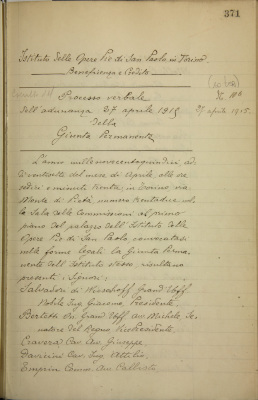 371
Istituto delle Opere Pie di San Paolo in Torino
Beneficenza e Credito
Processo verbale
dell'adunanza 27 aprile 1915
27 aprile 1915.
della
Giunta Permanente
L'anno millenovecentoquindici ad
di ventisette del mese di Aprile, alle ore
e minuti trenta, in Torino via
Monte di Pietà, numero trentadue nel
la Sala delle Commissioni al primo
piano del palazzo dell'Istituto delle
Opere Pie di San Paolo, convocatasi
nelle forme legali la Giunta Perma
nente dell'Istituto stesso risultano
presenti i Signori:
Salvadori di Wiesenhoff Grand'Uff.
Nobile Ing. Giacomo, Presidente,
Bertetti Grand'Uff. Avv. Michele Se
natore del Regno, Vicepresidente,
Cravero Cav. Avv. Giuseppe,
Davicini Cav. Ing. Attilio,
Comm. Avv.